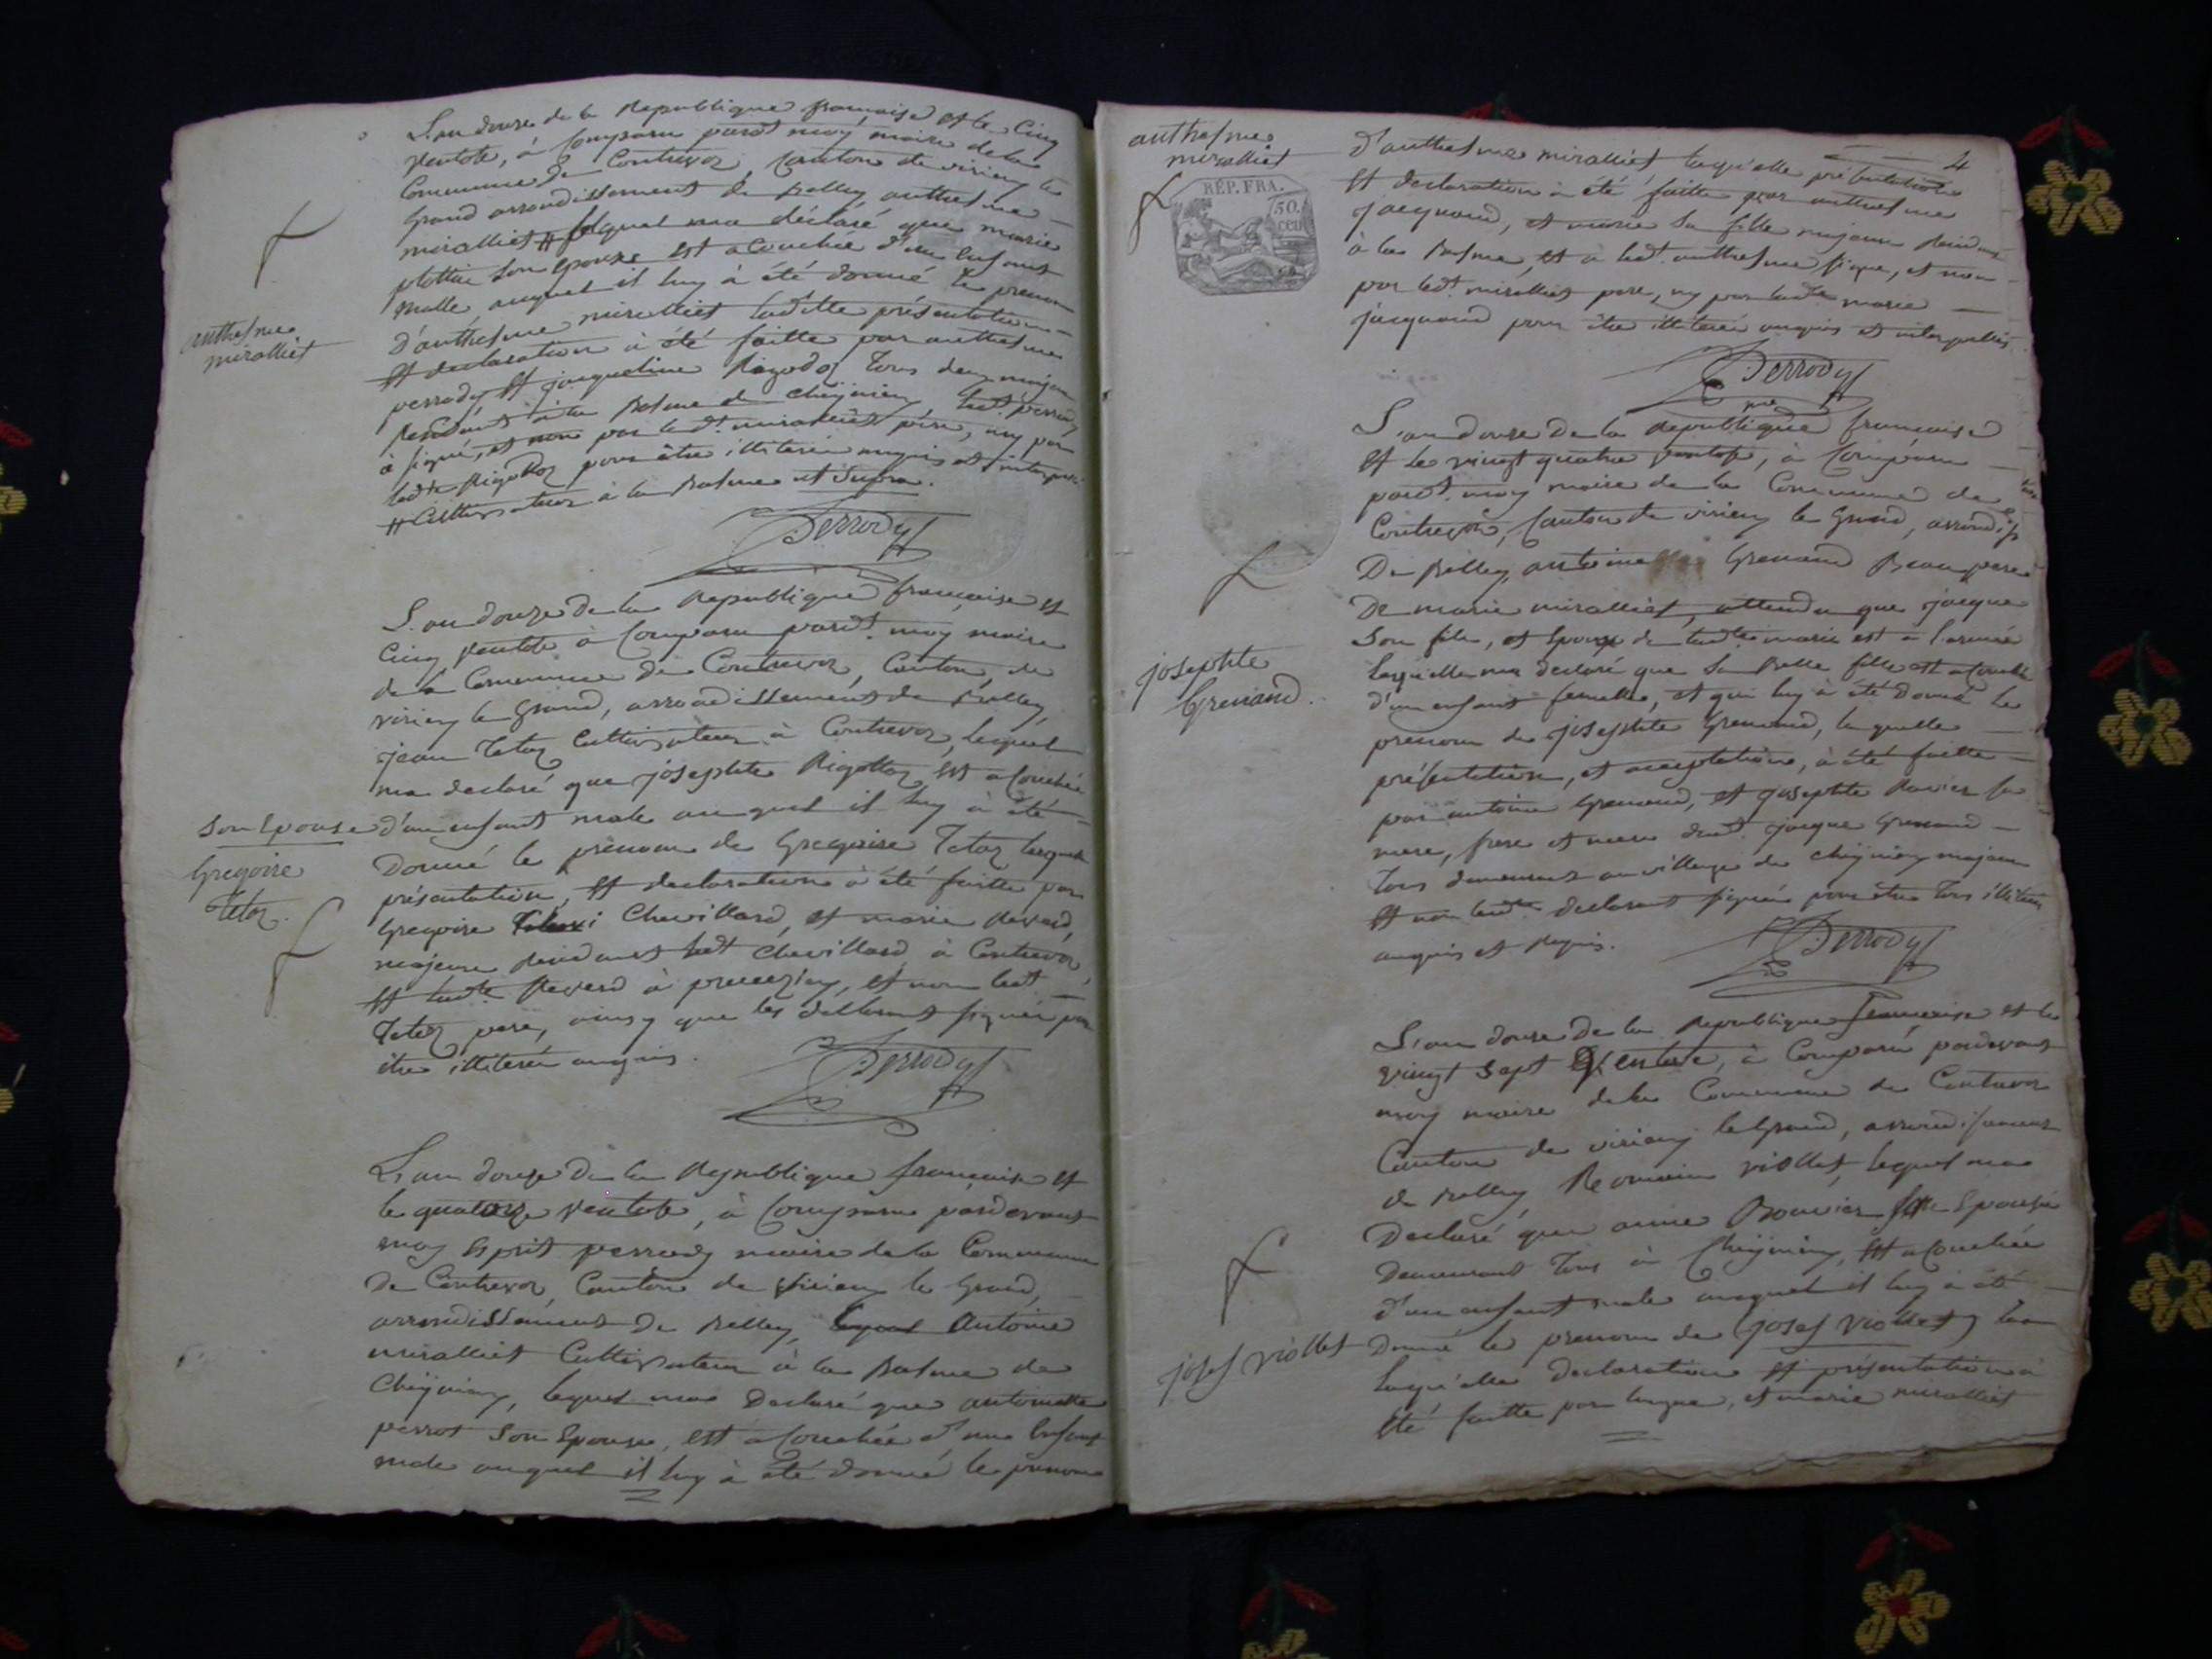 L'an douze de la Republique française et le Cinq
Ventose, à Comparu pardt moy maire de la
Commune de Contrevoz, Canton de virieu le
Grand arrondissement de Belley, anthelme
miralliet # lequel ma déclaré que marie
son Epouse est acouchée d'un Enfant
malle, auquel il luy à été donné le prenom
D'anthelme miralliet laditte présentation
Et declaration à été faitte par anthelme
perrody Et jacqueline Rigodoz Tous deux majeur
Residant à la Balme de Cheignieu, ledt perrody
à signé, et non par le dt. miralliet père, ny par
ladte Rigottoz pour être illiteré enquis et interpellé
# Cultivateur à la Balme et supra.
Perrody
anthelme
miralliet
L'an douze de la Republique française et
Cinq Ventose à Comparu pardt. moy maire
de la Commune de Contrevoz, Canton de
virieu le Grand, arrondissement de Belley,
jean Tetaz Cultivateur à Contrevoz, lequel
ma declaré que josephte Rigottoz Est acouchée
son Epouse d'un enfant male auquel il luy à été
Donné le prenom de Gregoire Tetaz laquelle
présentation, Et declaration à été faitte par
Gregoire Chevillard, et marie Revard,
majeure Residant ledt Chevillard à Contrevoz,
Et ladte. Revard à et non ledt
Tetaz pere, ainsy que les declarant signés pour
être illiteré enquis.
Perrody
Gregoire
Tetaz.
L'an douze De la Republique française et
le quatorze Ventose, à Comparu pardevant
moy Esprit perrody maire de la Commune
De Contrevoz, Canton de Virieu le Grand,
arrondissement De Belley, Antoine
miralliet Cultivateur à la Balme de
Cheignieu, lequel ma Declaré que antoinette
perrot son Epouse, est acouchée d'un Enfant
male auquel il luy à été donné le prenom
anthelme
miralliet
4
RÉP. FRA.
50.
cen
D'anthelme miralliet, laquelle présentation
Et declaration à été faitte par anthelme
jacquand, et marie sa fille majeure Residant
à la Balme, Et à ledt. anthelme signe, et non
par ledt miralliet pere, ny par ladte marie
jacquand pour être illiteré enquis et interpellés
Perrody
L'an douze De la Republique française
Et le vingt quatre Ventose, à Comparu
pardt. moy maire de la Commune de
Contrevoz, Canton de virieu le Grand, arrondiss
De Belley, antoine Grenand Beaupere
De marie miralliet, attendu que jacque
son fils, et Epoux de ladte marie est à l'armée
laquelle ma declaré que sa Belle fille est acouchée
d'un enfant femelle, et qui luy à été donné le
prenom de josephte Grenand, laquelle
présentation, et acceptation, à été faitte
par antoine Grenand, et josephte sa
mere, frere et mere dudt. jacque Grenand
Tous demeurant au village de Cheignieu majeur
Et non declarant signés pour être Tous illiteré
enquis et Requis.
Perrody
josephte
Grenand.
L'an douze De la Republique française et le
vingt sept Ventose, à Comparu pardevant
moy maire de la Commune de Contrevoz
Canton de virieu le Grand, arrondissement
de Belley, Romain viollet, lequel ma
Declaré que anne Bouvier son Epouse
Demeurant Tous à Cheignieu, Est acouchée
d'un enfant male auquel il luy à été
josef viollet
Donné le prenom de josef viollet
laquelle declaration Et présentation à
Eté faitte par et marie miralliet